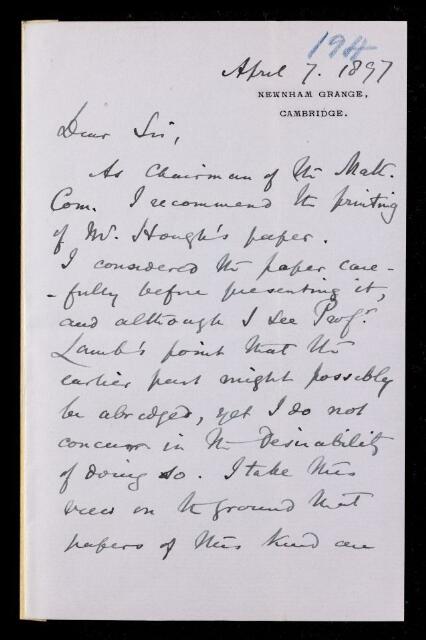 194
April 7. 1897
NEWNHAM GRANGE,
CAMBRIDGE.
Dear Sir,
As Chairman of the Math.
Com. I recommend the printing
of Mr. Hough's paper.
I considered the paper care-
-fully before presenting it,
and although I see Prof.r
Lamb's point that the
earlier part might possibly
be abridged, yet I do not
concur in the desirability
of doing so. I take this
view on the ground that
papers of this kind are